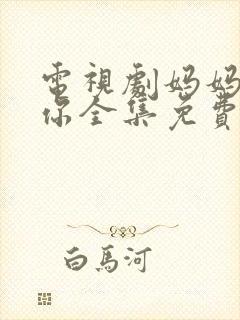 電視劇妈妈
你全集免費
白馬河